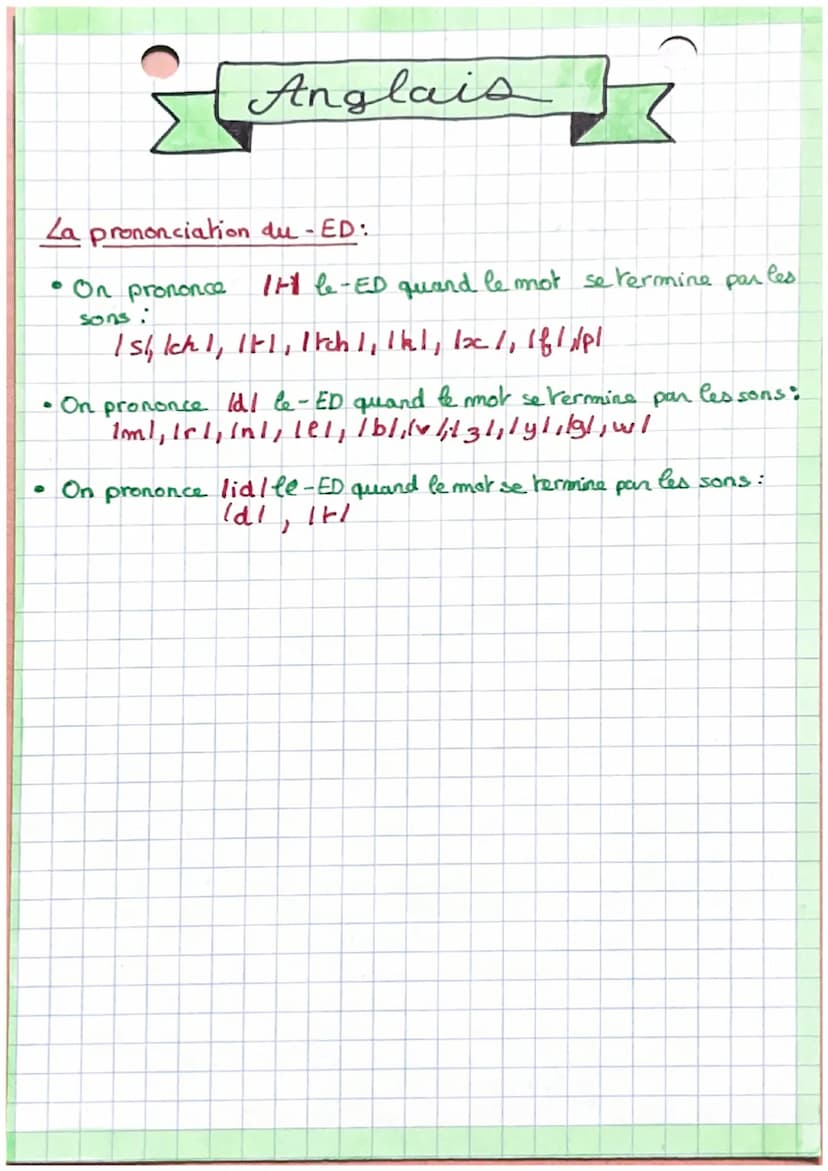 Anglais
La prononciation du -ED:
• On prononce /t/ le -ED quand le mot se termine par les
sons :
/s/, /ch/, /t/, /tch/, /k/, /x/, /f/, /p/
• On prononce /d/ le -ED quand le mot se termine par les sons :
/m/, /r/, /n/, /l/, /b/, /v/, /z/, /y/, /g/, w/
• On prononce /id/ le -ED quand le mot se termine par les sons :
/d/, /t/